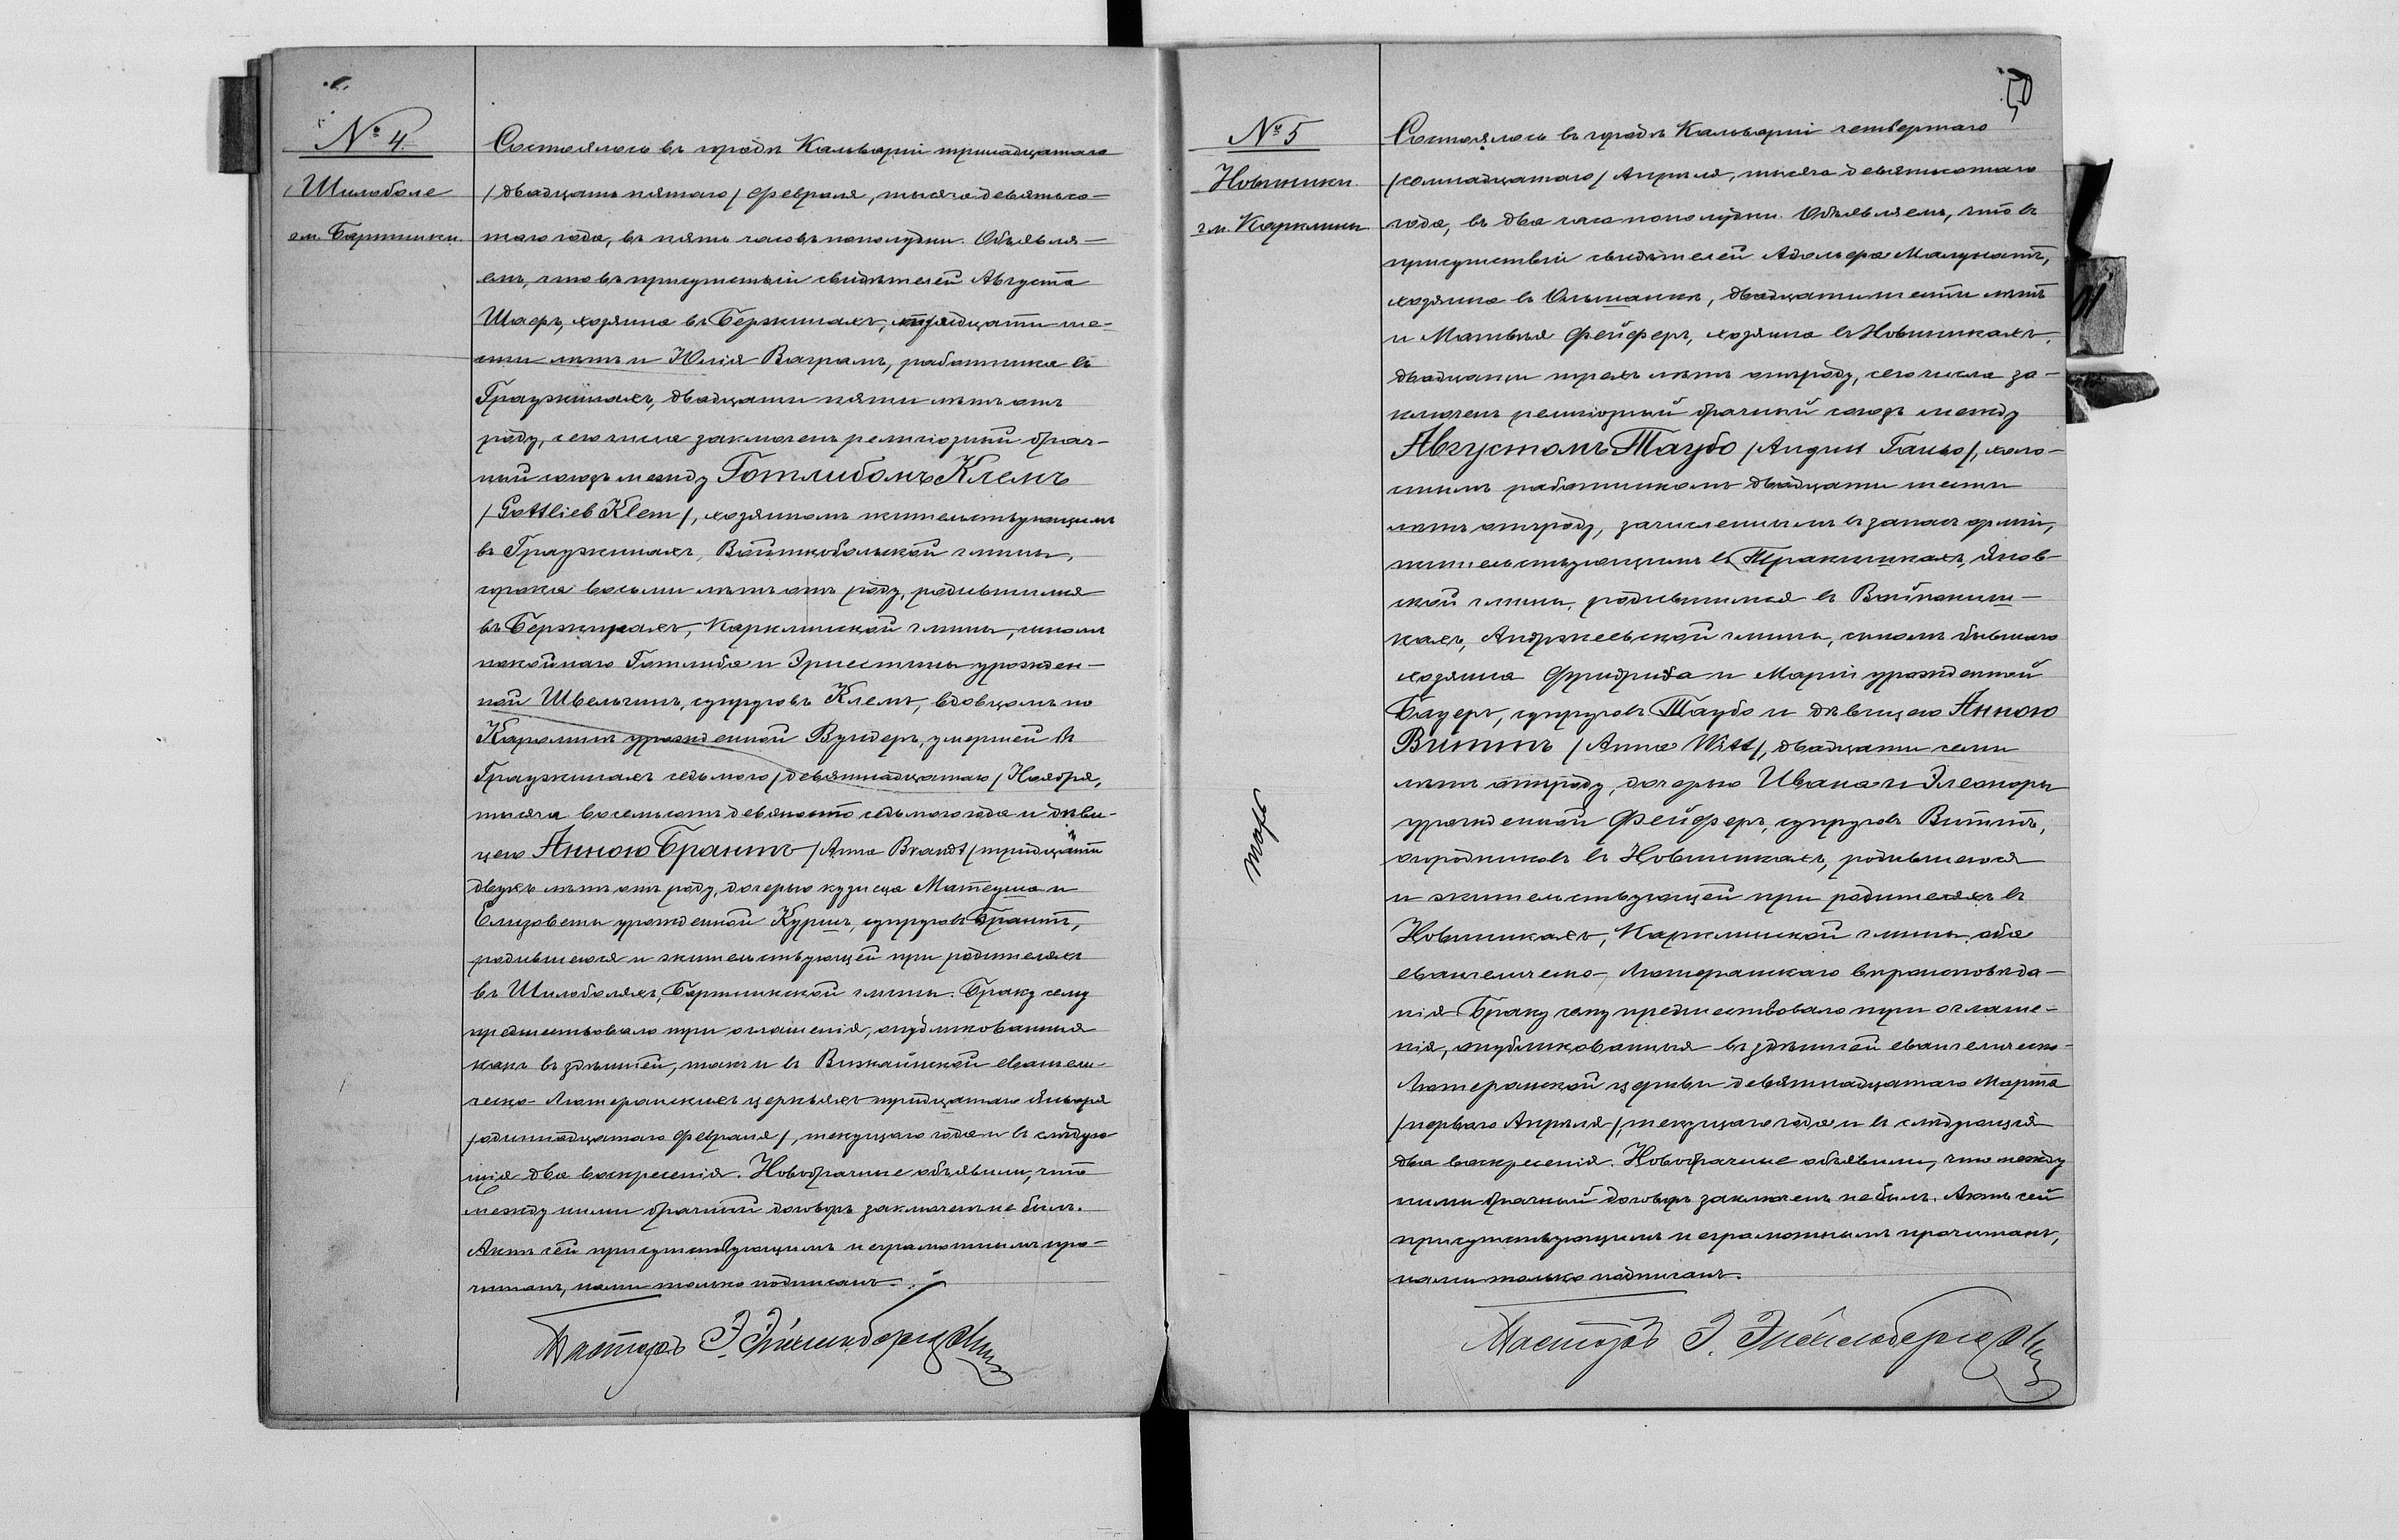 № 4.
Шилоболе
гм. Бартники.
Состоялось въ городѣ Кальваріи тринадцатаго
/двадцать пятаго/ Февраля, тысяча девятьсо-
таго года, въ пять часовъ пополудни. Объявля-
емъ, что въ присутствіи свидѣтелей Августа
Шаеръ, хозяина въ Бержинахъ, тридцати ше-
сти лѣтъ и Юлія Ваграмъ, работника въ
Гражинахъ, двадцати пяти лѣтъ отъ
роду, сего числа заключенъ религіозный брач-
ный союзъ между Готлибомъ Клемъ
/Gottlieb Klem/, хозяиномъ жительствующимъ
въ Гражинахъ, Войткобольской гмины,
сорока восьми лѣтъ отъ роду, родившимся
въ Бержинахъ, Карклинской гмины, сыномъ
покойнаго Готлиба и Эрнестины урожден-
ной Швельгинъ, супруговъ Клемъ, вдовцомъ по
Каролинѣ урожденной Вундеръ, умершей въ
Гражинахъ седьмого /девятнадцатаго/ Ноября,
тысяча восемьсотъ девяносто седьмого года и дѣви-
цею Анною Брантъ /Anna Brandt/ тридцати
двухъ лѣтъ отъ роду, дочерью кузнеца Матеуша и
Елизаветы урожденной Куршъ, супруговъ Брантъ,
родившеюся и жительствующей при родителяхъ
въ Шилоболяхъ, Бартникской гмины. Браку сему
предшествовало три оглашенія, опубликованныя
какъ въ здѣшней, такъ и въ Вижайнской евангели-
ческо-Лютеранскихъ церквахъ тридцатаго Января
/одиннадцатаго Февраля/, текущаго года и въ слѣдую-
щія два воскресенія. Новобрачные объявили, что
между ними брачный договоръ заключенъ не былъ.
Актъ сей присутствующимъ неграмотнымъ про-
читанъ, нами только подписанъ.
Пасторъ Э.
№ 5
Новинники
гм. Карклины.
50
Состоялось въ городѣ Кальваріи четвертаго
/семнадцатаго/ Апрѣля, тысяча девятьсотаго
года, въ два часа пополудни. Объявляемъ, что въ
присутствіи свидѣтелей Адольфа Малунатъ,
хозяина въ Ольшанкѣ, двадцати шести лѣтъ
и Матвѣя Фейферъ, хозяина въ Новинникахъ,
двадцати трехъ лѣтъ отъ роду, сего числа за-
ключенъ религіозный брачный союзъ между
Августомъ Таубо /August Taubo/, холо-
стымъ работникомъ двадцати шести
лѣтъ отъ роду, зачисленнымъ въ запасъ арміи,
жительствующимъ въ Тракишкахъ, Янов-
ской гмины, родившимся въ Вайпониш-
кахъ, Анджеевской гмины, сыномъ бывшаго
хозяина Фридриха и Маріи урожденной
Бауеръ, супруговъ Таубо и дѣвицею Анною
Виттъ /Anna Witt/, двадцати семи
лѣтъ отъ роду, дочерью Ивана и Элеоноры
урожденной Фейферъ, супруговъ Виттъ,
огородниковъ въ Новинникахъ, родившеюся
и жительствующей при родителяхъ въ
Новинникахъ, Карклинской гмины, оба
евангелическо-Лютеранскаго вѣроисповѣда-
нія. Браку сему предшествовало три оглаше-
нія, опубликованныя въ здѣшней евангелическо-
Лютеранской церкви девятнадцатаго Марта
/перваго Апрѣля/, текущаго года и въ слѣдующія
два воскресенія. Новобрачные объявили, что между
ними брачный договоръ заключенъ не былъ. Актъ сей
присутствующимъ неграмотнымъ прочитанъ,
нами только подписанъ.
Пасторъ Э.